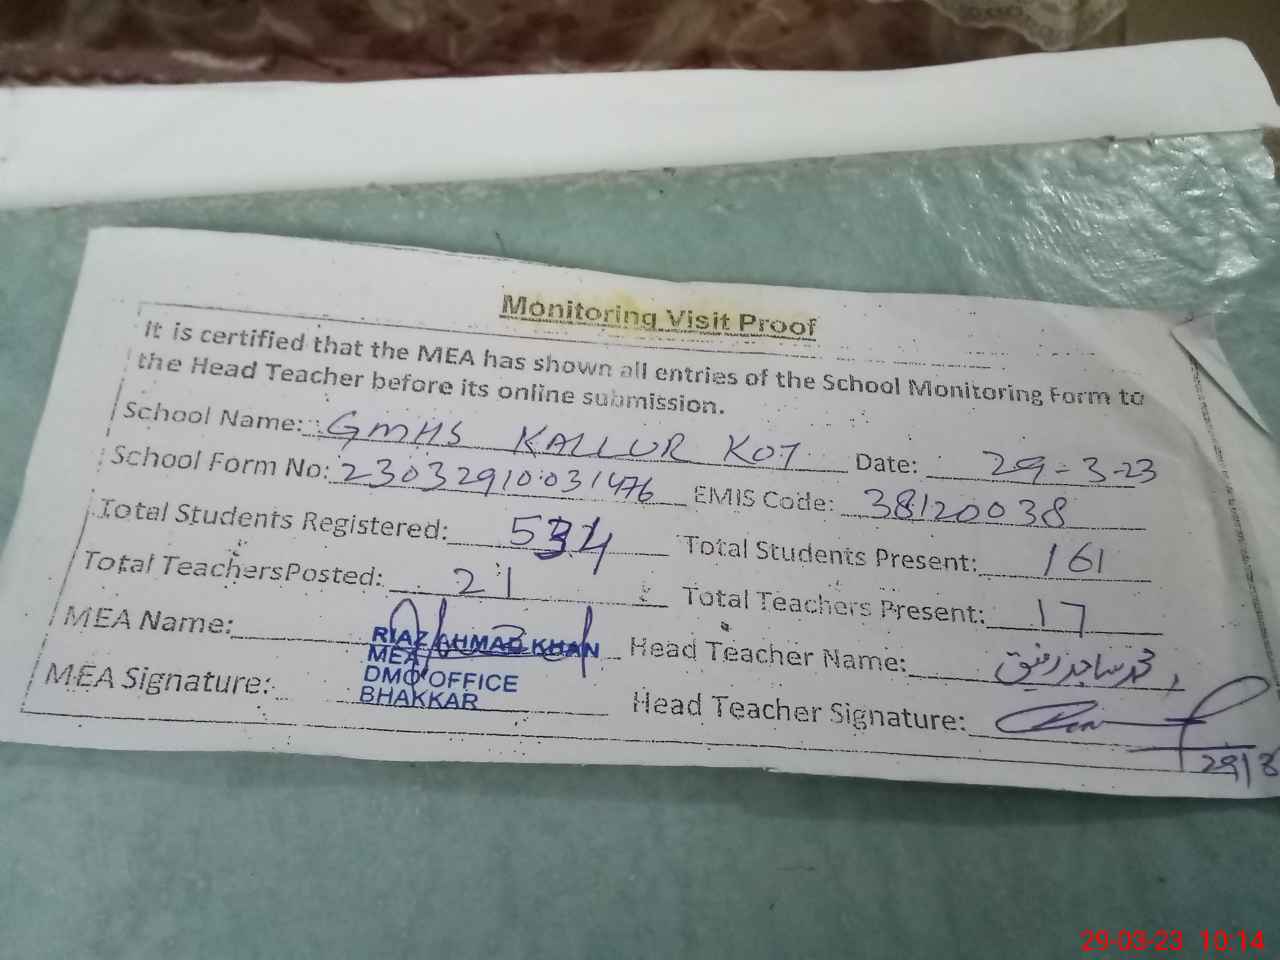 Monitoring Visit Proof
It is certified that the MEA has shown all entries of the School Monitoring Form to
the Head Teacher before its online submission.
School Name: GMHS KALLUR KOT Date: 29-3-23
School Form No: 23032910031476 EMIS Code: 38120038
Total Students Registered: 534 Total Students Present: 161
Total TeachersPosted: 21 Total Teachers Present: 17
MEA Name: RIAZ AHMAD KHAN Head Teacher Name: محمد ساجد رفیق
MEA
DMO OFFICE
MEA Signature: BHAKKAR Head Teacher Signature:
29/3
29-03-23 10:14